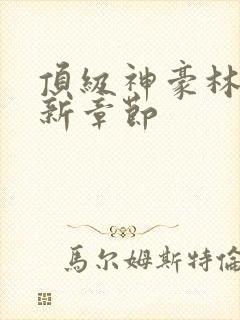 頂級神豪林
新章節
馬尔姆斯特倫